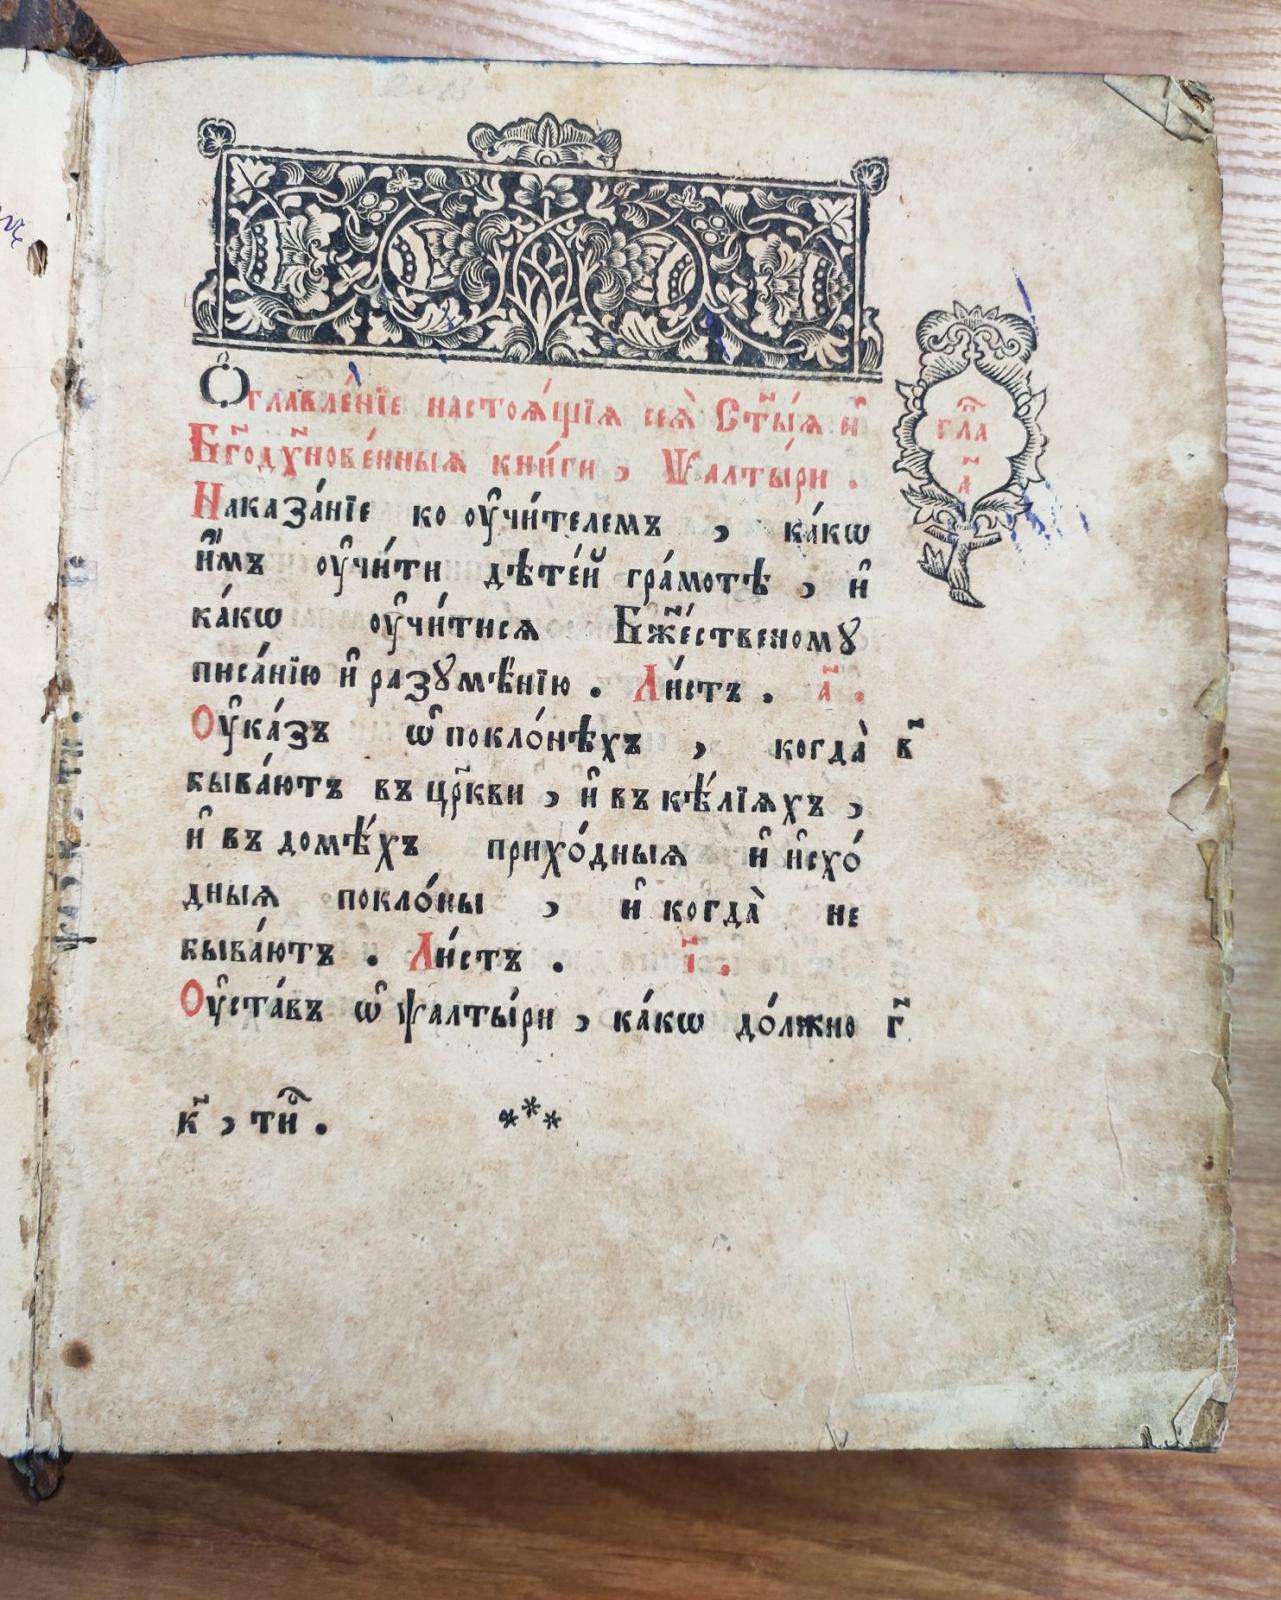 Ѡ҆главле́нїе настоѧ́щїѧ сеѧ̀ Ст҃ы́ѧ и҆
Бг҃одх҃нове́нныѧ кни́ги , Ѱалты́ри .
гла
а҃
Наказа́нїе ко ᲂу҆чи́телемъ , ка́кѡ
и҆̀мъ ᲂу҆чи́ти дѣте́й гра́мотѣ , и҆
ка́кѡ ᲂу҆чи́тисѧ Бж҃е́ственомꙋ
писа́нїю и҆ разꙋмѣ́нїю . Ли́стъ . а҃ .
Оу҆ка́зъ ѡ҆ покло́нѣхъ , когда̀ в҃
быва́ютъ въ цр҃кви , и҆ въ кѣ́лїѧхъ ,
и҆ въ домѣ́хъ прихо́дныѧ и҆ и҆схо́
дныѧ покло́ны , и҆ когда̀ не
быва́ютъ . Ли́стъ . і҃ .
Оу҆ста́въ ѡ҆ ѱалты́ри , ка́кѡ до́лжно г҃
к҃ , ти .
***